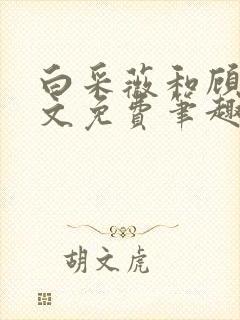 白采薇和顾
文免费笔趣
胡文虎